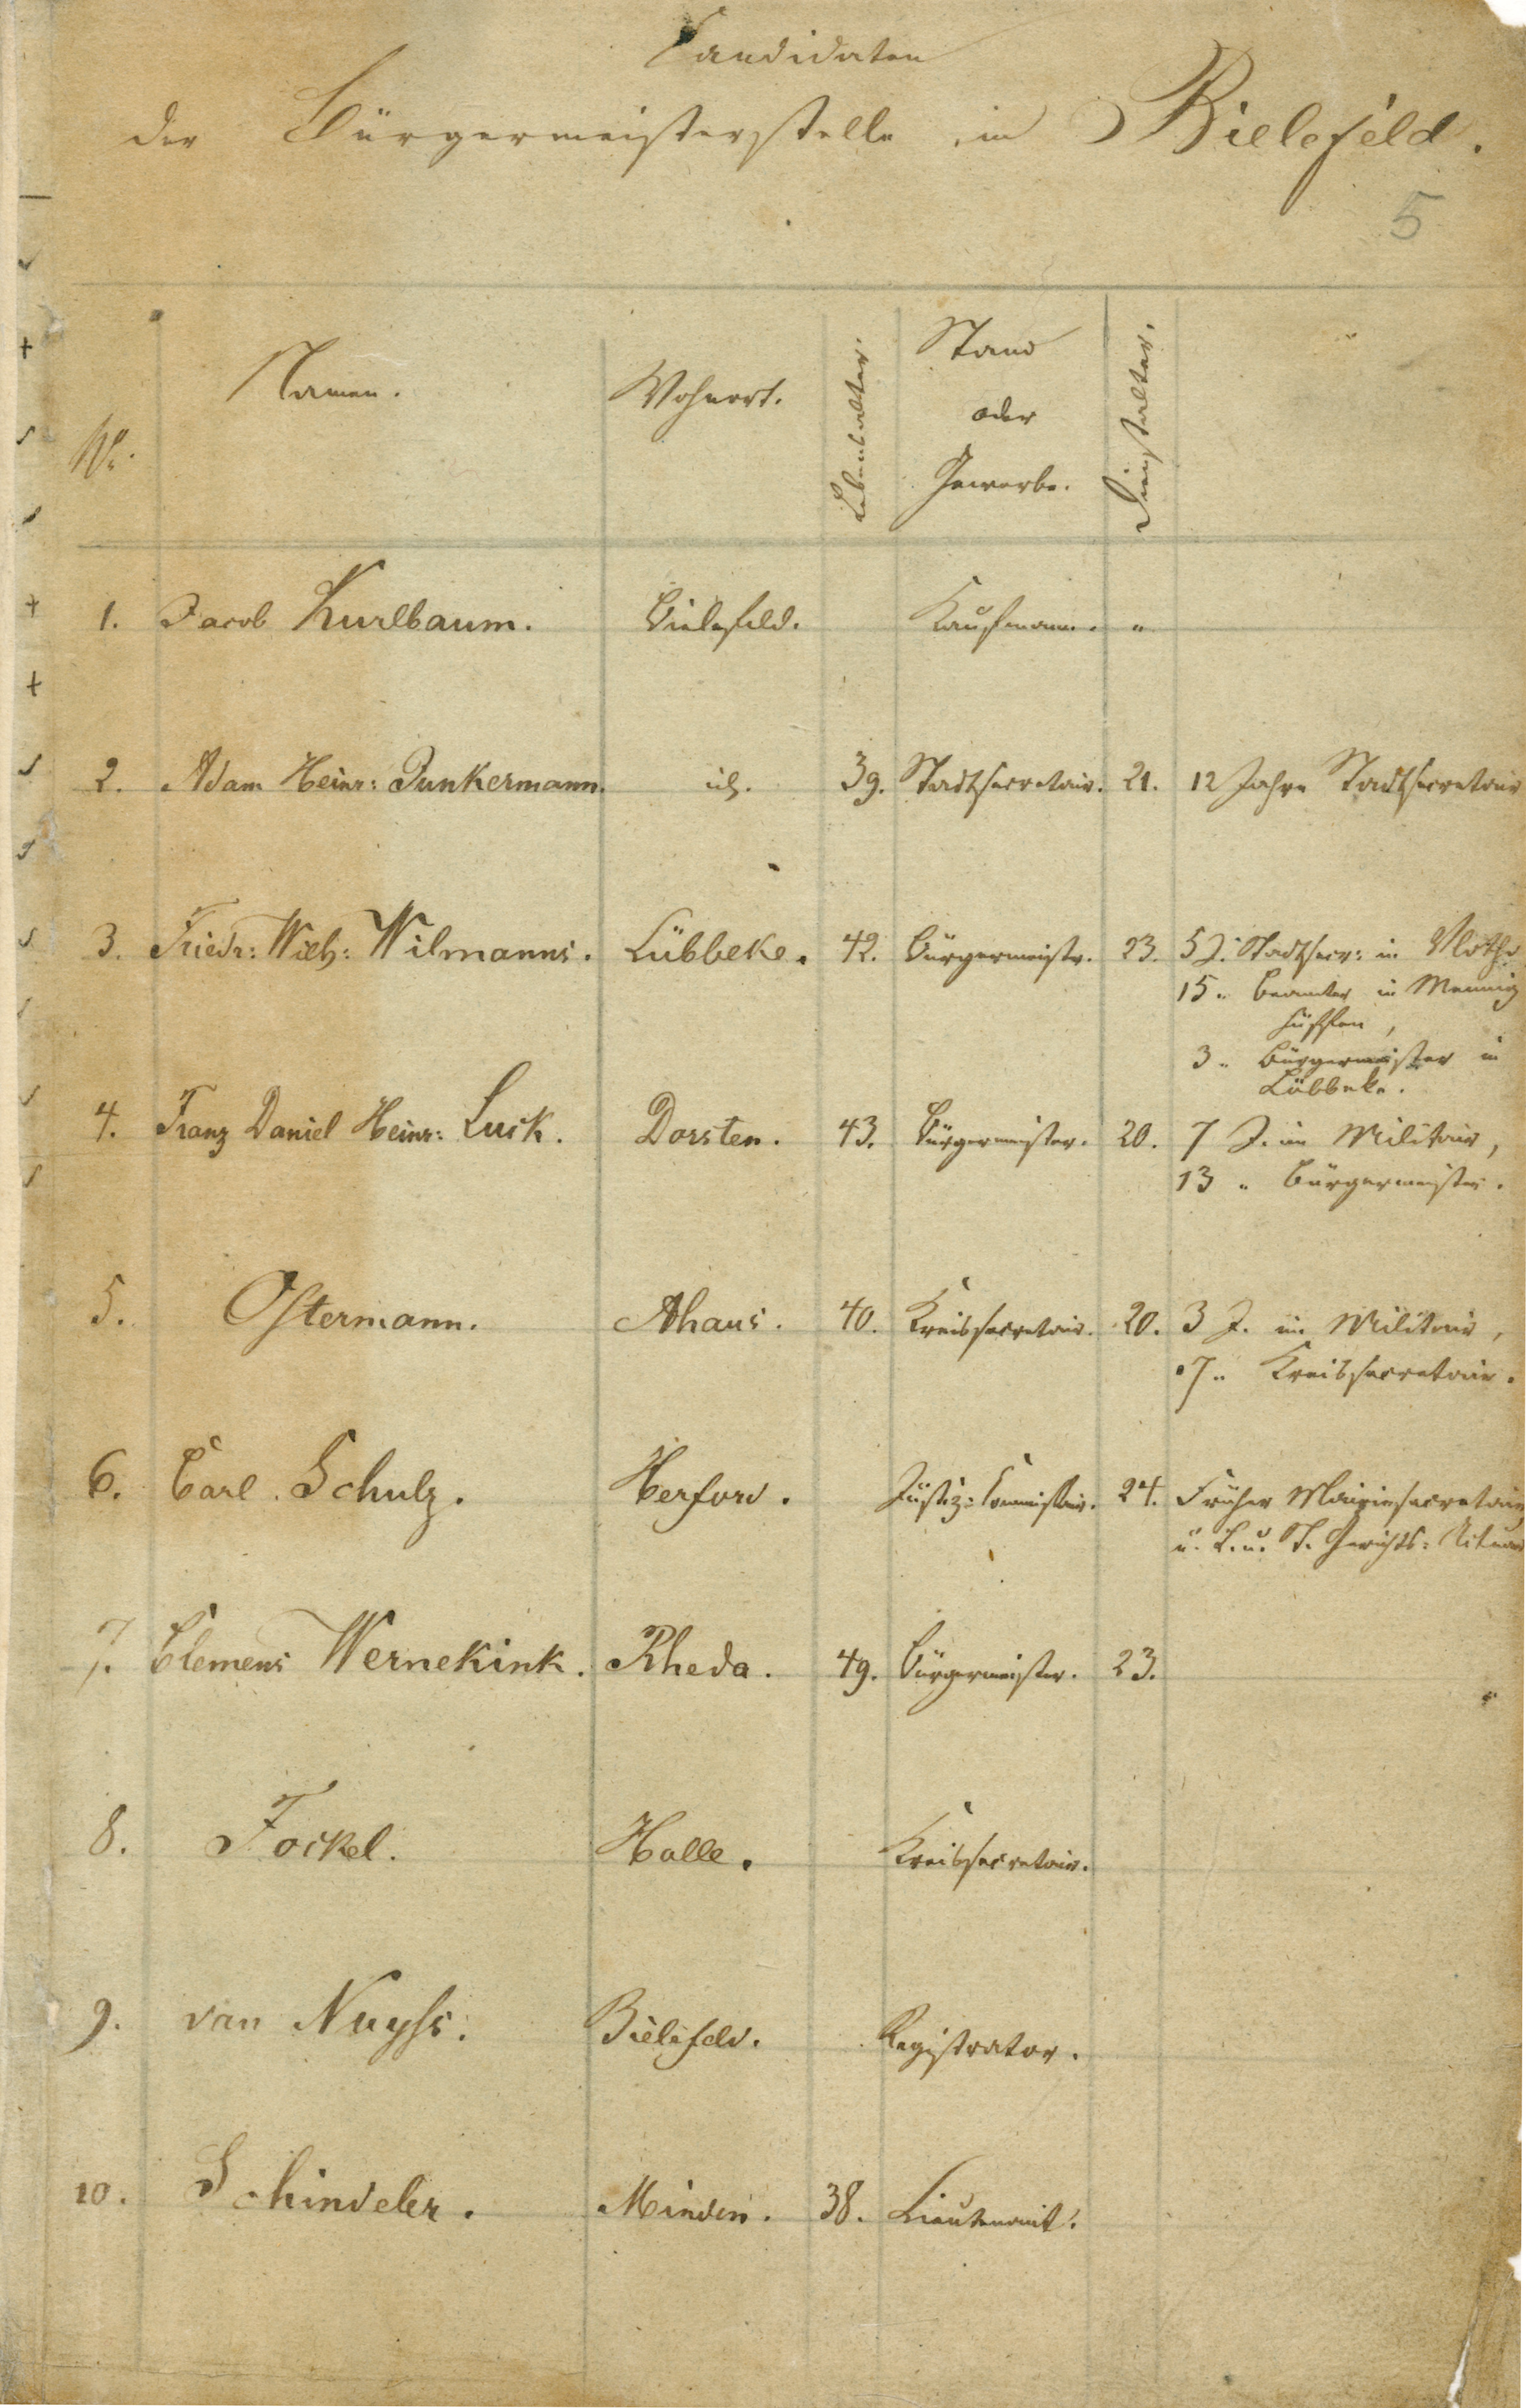 Candidaten
der Bürgermeisterstelle in Bielefeld.
5
No. Namen. Wohnort. Lebensalter. Stand oder Gewerbe. Dienstalter.
1. Jacob Kurlbaum. Bielefeld. Kaufmann. "
2. Adam Heinr: Junkermann. id. 39. Stadtsecretair. 21. 12 Jahre Stadtsecretair
3. Friedr: Wilh: Wilmanns. Lübbeke. 42. Bürgermeistr. 23. 5 J. Stadtsecr: in Vlotho
15 " Beamter in Mennig
hüffen,
3 " Bürgermeister in
Lübbeke.
4. Franz Daniel Heinr: Luck. Dorsten. 43. Bürgermeister. 20. 7 J. im Militair,
13 " Bürgermeister.
5. Ostermann. Ahaus. 40. Kreissecretair. 20. 3 J. im Militair,
7 " Kreissecretair.
6. Carl Schulz. Herford. Justiz-Commissair. 24. Früher Mairiesecretair
u. L. u. St. Gerichts-Actuar
7. Clemens Wernekink. Rheda. 49. Bürgermeister. 23.
8. Fockel. Halle. Kreissecretair.
9. van Nuyss. Bielefeld. Registrator.
10. Schindeler. Minden. 38. Lieutenant.